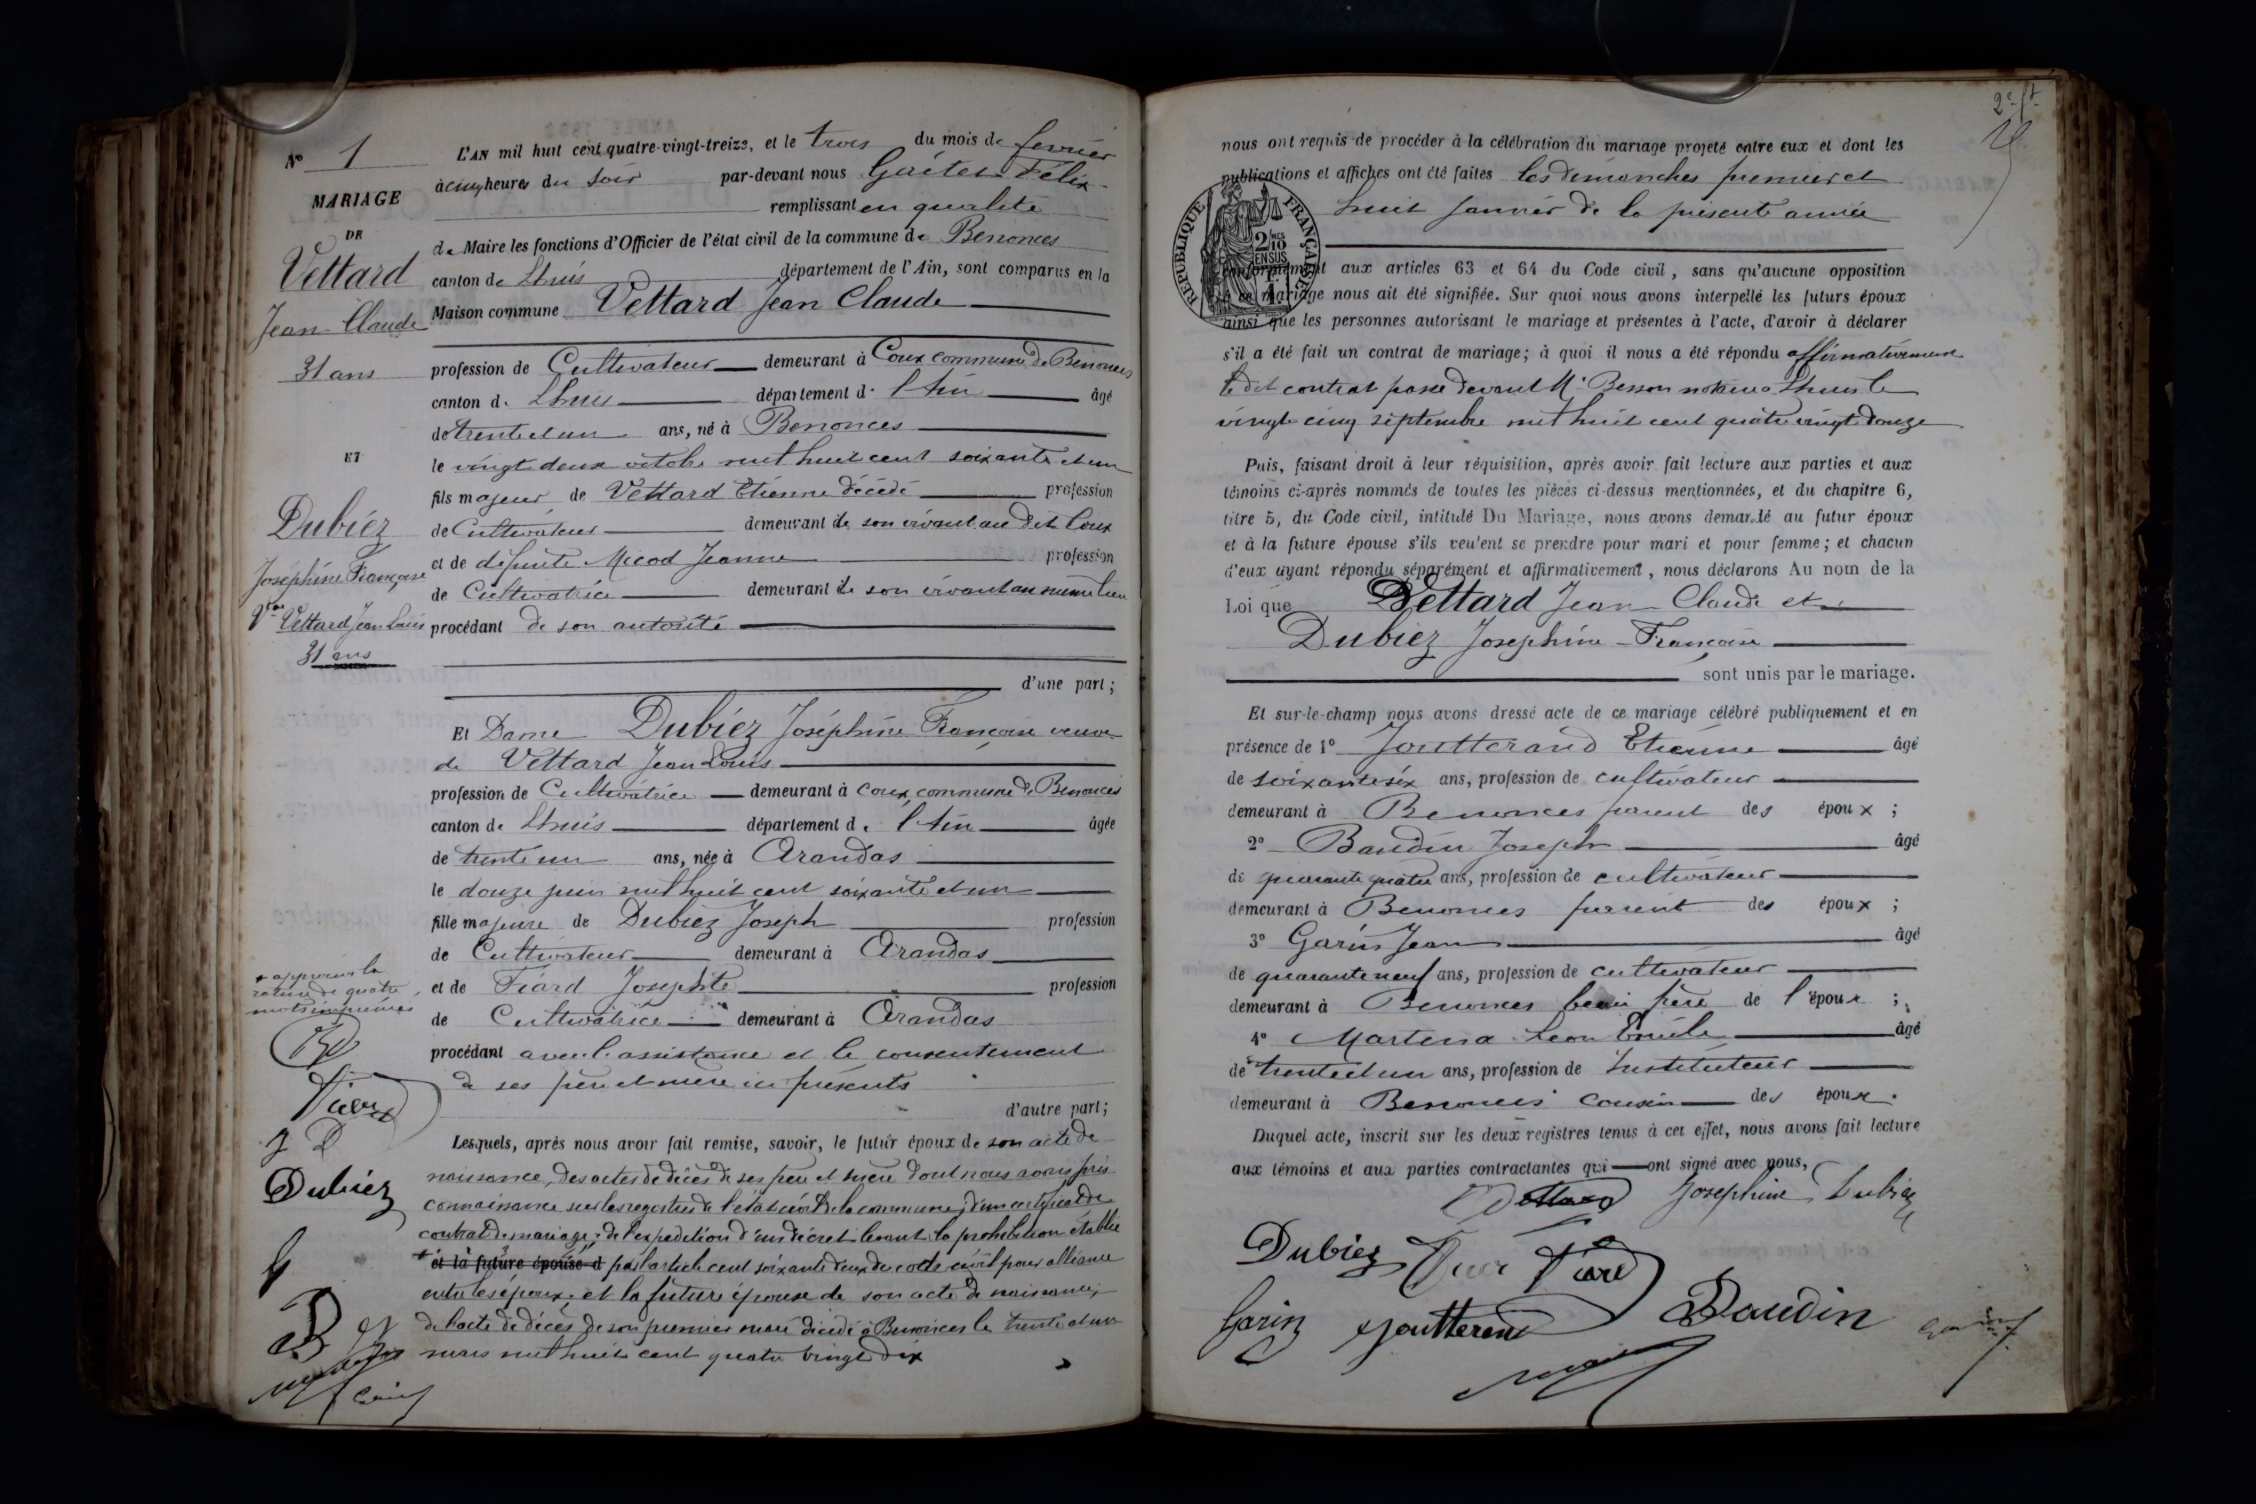 N° 1
MARIAGE
DE
Vettard
Jean Claude
31 ans
ET
Dubiez
Joséphine Françoise
Vve Vettard Jean Louis
31 ans
L'AN mil huit cent quatre-vingt-treize, et le trois du mois de fevrier
à cinq heures du soir par-devant nous Gaitet Félix
remplissant en qualité
de Maire les fonctions d'Officier de l'état civil de la commune de Benonces
canton de Lhuis département de l'Ain, sont comparus en la
Maison commune Vettard Jean Claude
profession de Cultivateur demeurant à Coux commune de Benonces
canton de Lhuis département de l'Ain âgé
de trente et un ans, né à Benonces
le vingt deux octobre mil huit cent soixante et un
fils majeur de Vettard Etienne décédé profession
de Cultivateur demeurant de son vivant au dit Coux
et de défunte Micod Jeanne profession
de Cultivatrice demeurant de son vivant au même lieu
procédant de son autorité
d'une part;
Et Dame Dubiez Joséphine Françoise veuve
de Vettard Jean Louis
profession de Cultivatrice demeurant à Coux commune de Benonces
canton de Lhuis département de l'Ain âgée
de trente un ans, née à Arandas
le douze juin mil huit cent soixante et un
fille majeure de Dubiez Joseph profession
de Cultivateur demeurant à Arandas
et de Fiard Josephte profession
de Cultivatrice demeurant à Arandas
procédant avec l'assistance et le consentement
de ses père et mère ici présents
d'autre part;
Lesquels, après nous avoir fait remise, savoir, le futur époux de son acte de
naissance, des actes de décès de ses père et mère dont nous avons pris
connaissance sur les registres de l'état civil de la commune; d'un certificat de
contrat de mariage; de l'expédition d'un décret levant la prohibition établie
* et la future épouse d par l'article cent soixante deux du code civil pour alliance
entre les époux. et la future épouse de son acte de naissance;
de l'acte de décès de son premier mari décédé à Benonces le trente et un
mars mil huit cent quatre vingt dix
* approuvé la
rature de quatre
mots imprimés
Fiard
J D
Dubiez
G
B
2e ft
nous ont requis de procéder à la célébration du mariage projeté entre eux et dont les
publications et affiches ont été faites les dimanches premier et
huit janvier de la présente année
RÉPUBLIQUE FRANÇAISE
2/10
EN SUS
conformément aux articles 63 et 64 du Code civil, sans qu'aucune opposition
à ce mariage nous ait été signifiée. Sur quoi nous avons interpellé les futurs époux
ainsi que les personnes autorisant le mariage et présentes à l'acte, d'avoir à déclarer
s'il a été fait un contrat de mariage; à quoi il nous a été répondu affirmativement
le dit contrat passé devant Me Besson notaire à Lhuis le
vingt cinq septembre mil huit cent quatre vingt douze
Puis, faisant droit à leur réquisition, après avoir fait lecture aux parties et aux
témoins ci-après nommés de toutes les pièces ci-dessus mentionnées, et du chapitre 6,
titre 5, du Code civil, intitulé Du Mariage, nous avons demandé au futur époux
et à la future épouse s'ils veulent se prendre pour mari et pour femme; et chacun
d'eux ayant répondu séparément et affirmativement, nous déclarons Au nom de la
Loi que Vettard Jean Claude et
Dubiez Josephine Françoise
sont unis par le mariage.
Et sur-le-champ nous avons dressé acte de ce mariage célébré publiquement et en
présence de 1° Joutterand Etienne âgé
de soixante six ans, profession de cultivateur
demeurant à Benonces parent des époux ;
2° Baudin Joseph âgé
de quarante quatre ans, profession de cultivateur
demeurant à Benonces parent des époux ;
3° Garin Jean âgé
de quarante neuf ans, profession de cultivateur
demeurant à Benonces beau frère de l'époux ;
4° Leon Emile âgé
de trente et un ans, profession de Instituteur
demeurant à Benonces cousin des époux.
Duquel acte, inscrit sur les deux registres tenus à cet effet, nous avons fait lecture
aux témoins et aux parties contractantes qui ont signé avec nous,
Vettard Josephine Dubiez
Dubiez Fiard
Garin Joutterand Baudin